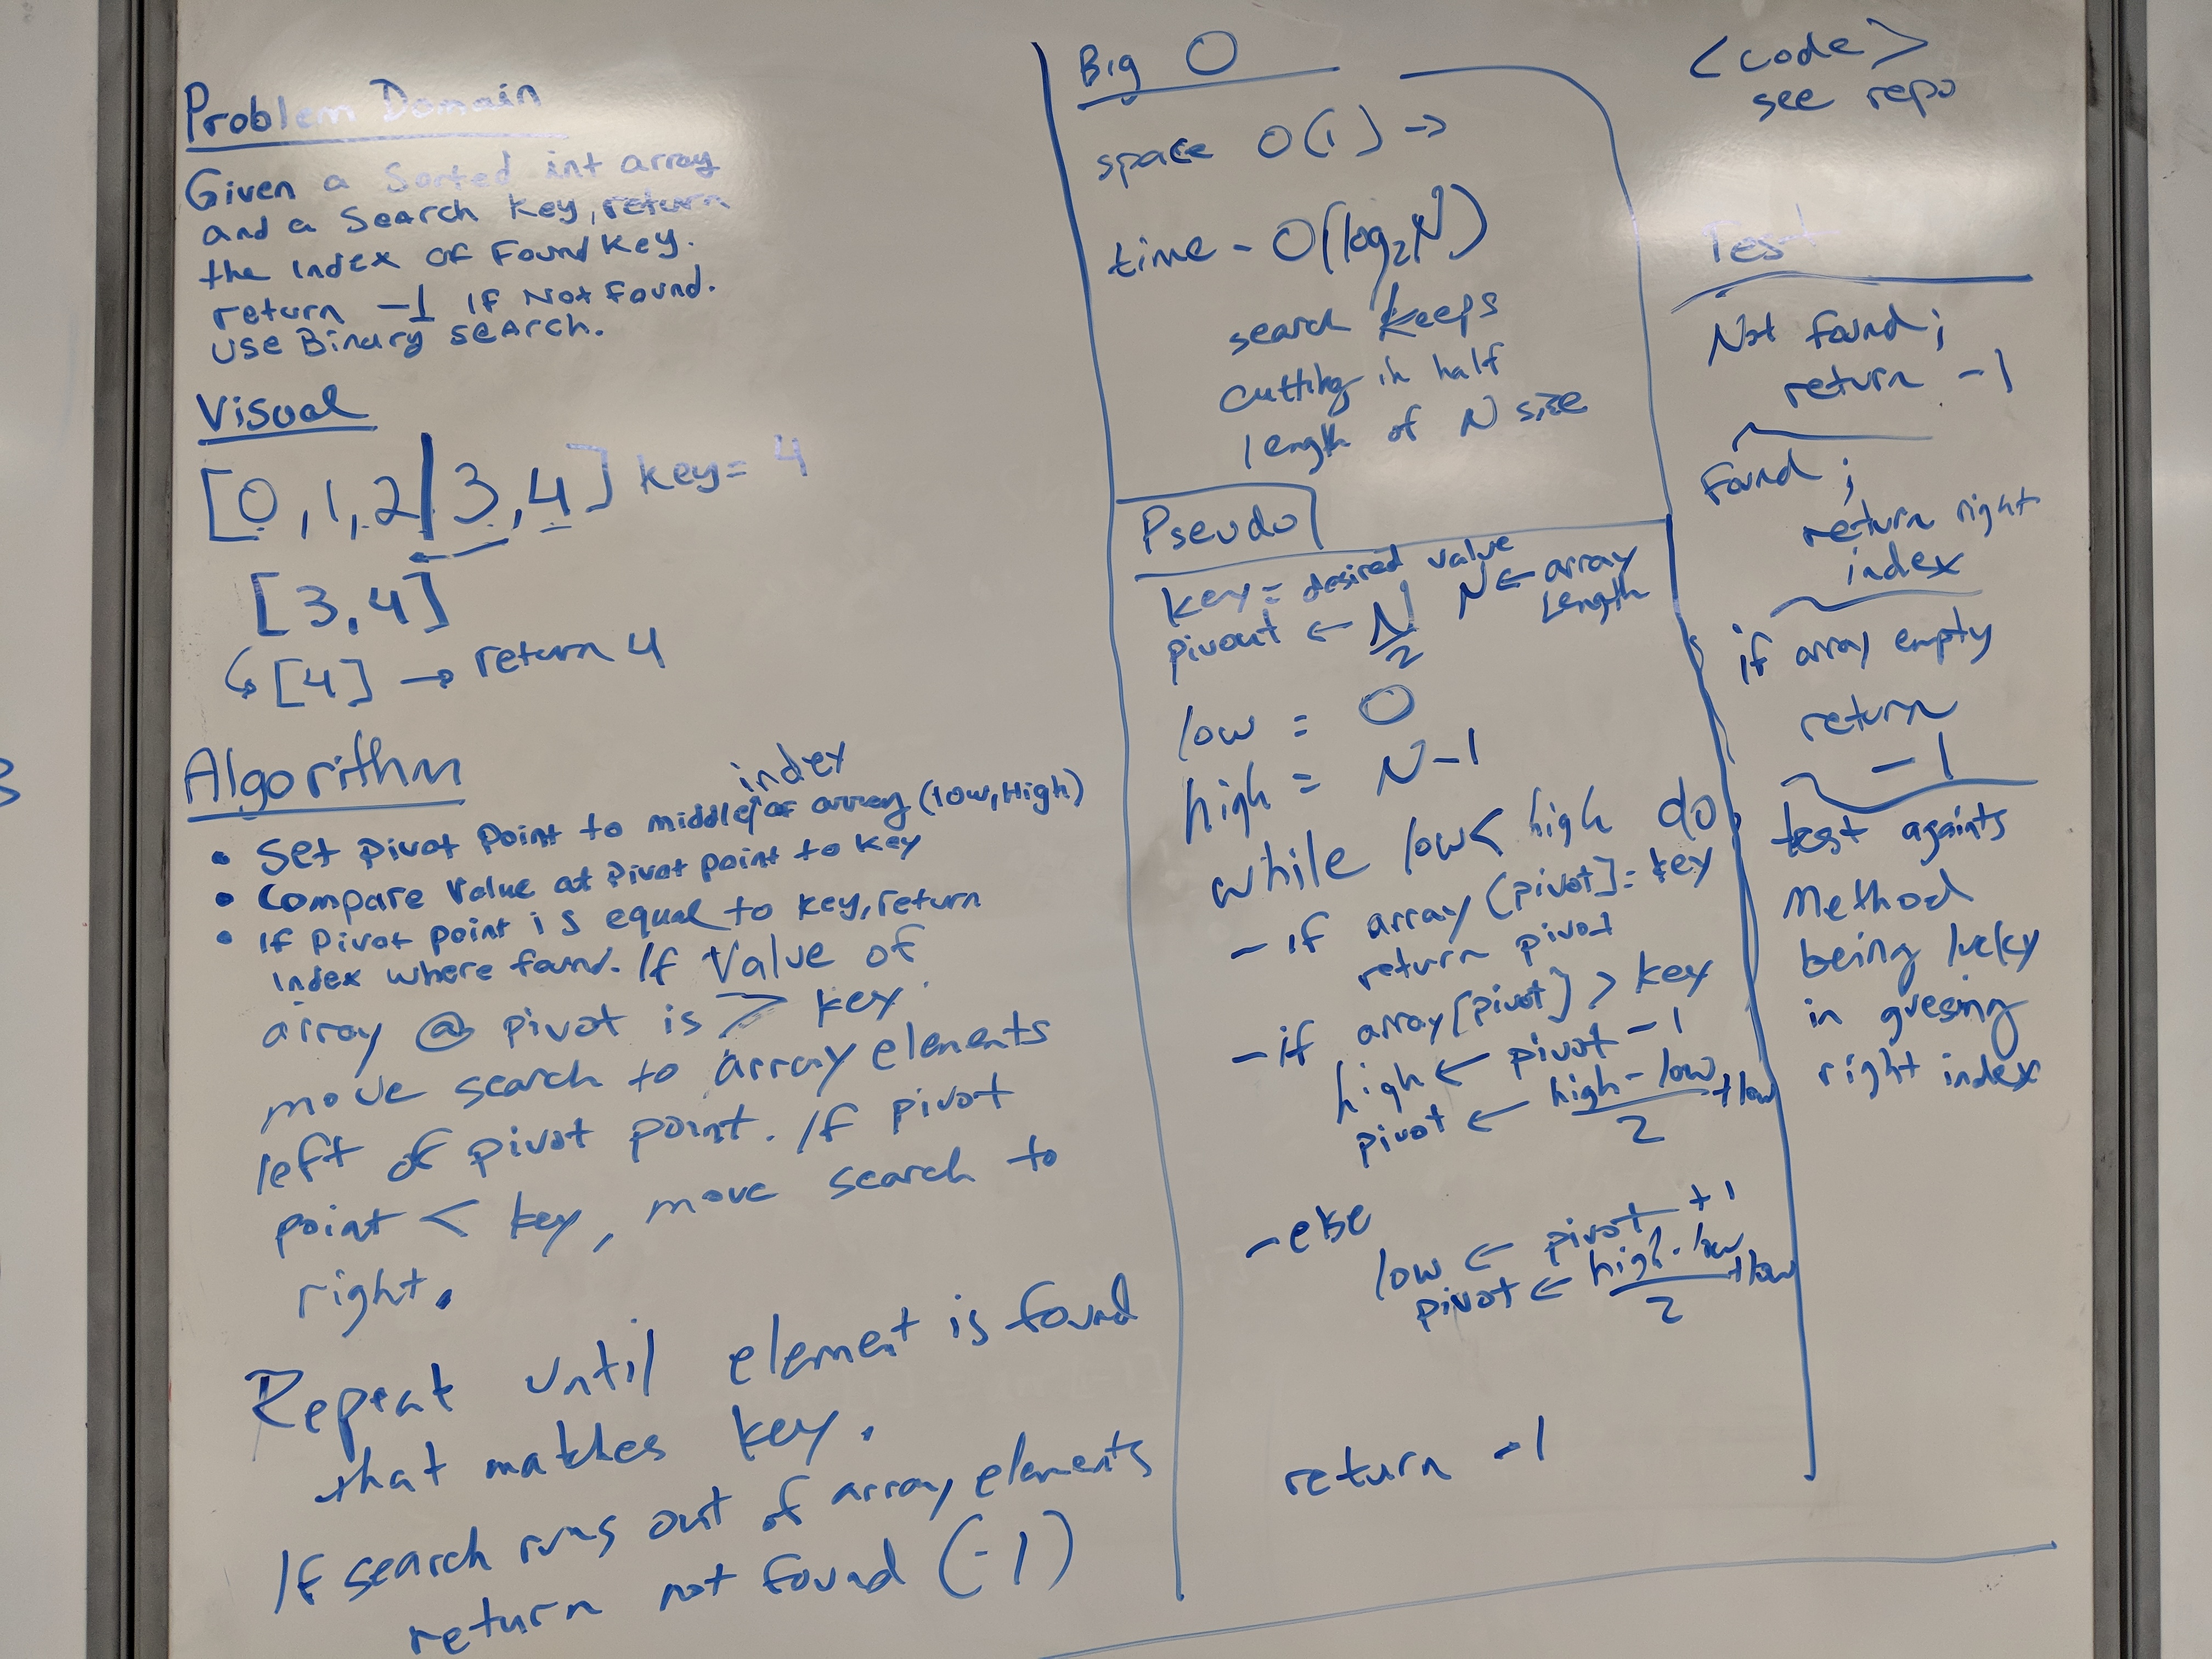 Problem Domain
Given a Sorted int array
and a Search Key, return
the Index of Found Key.
return -1 If Not Found.
Use Binary search.
Visual
[0,1,2|3,4] key= 4
[3,4]
[4] → return 4
Algorithm
index
• Set Pivot Point to middle of array (low, High)
• Compare Value at Pivot point to Key
• If Pivot point is equal to key, return
Index where found. If Value of
array @ pivot is > key
move search to array elements
left of pivot point. If pivot
point < key, move search to
right.
Repeat until element is found
that matches key.
If search runs out of array elements
return not found (-1)
Big O
space O(1) →
time - O(log₂N)
search keeps
cutting in half
length of N size
Pseudo
key = desired value
N ← array
Length
pivout ← N/2
low = 0
high = N-1
while low < high do
- if array (pivot] = key
return pivot
- if array[pivot] > key
high ← pivot - 1
pivot ← high - low / 2 + low
- else
low ← pivot + 1
pivot ← high - low / 2 + low
return -1
<code>
see repo
Test
Not found;
return -1
Found;
return right
index
if array empty
return
-1
test againts
Method
being lucky
in guesing
right index